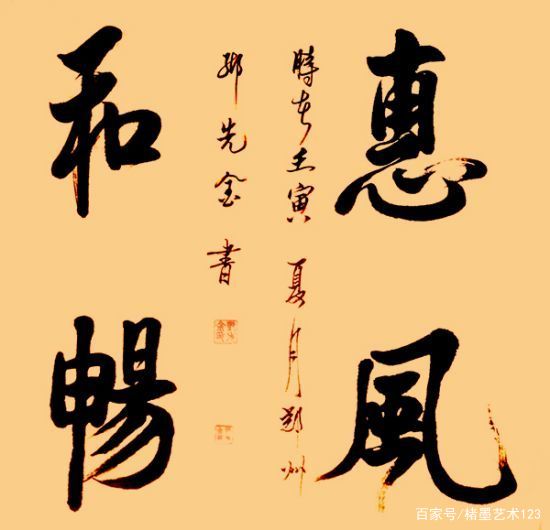 惠風
時在壬寅夏月鄭州
先金書
和暢
百家号/楮墨艺术123